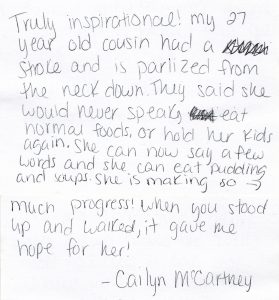 Truly inspirational! my 27
year old cousin had a
stroke and is parlized from
the neck down. They said she
would never speak, eat
normal foods, or hold her kids
again. She can now say a few
words and she can eat pudding
and soups. She is making so →
much progress! When you stood
up and walked, it gave me
hope for her!
- Cailyn McCartney